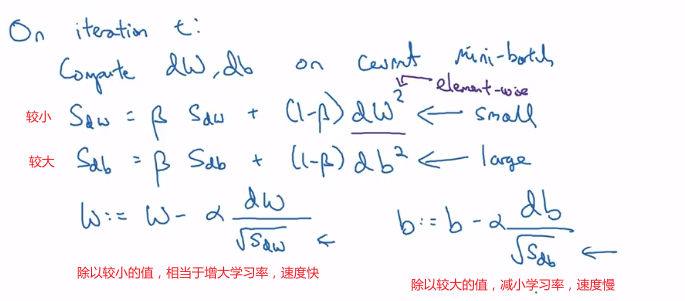 On iteration t:
Compute dW, db on current mini-batch
element-wise
较小 Sdw = β Sdw + (1-β) dW² ← small
较大 Sdb = β Sdb + (1-β) db² ← large
W := W - α dW/√Sdw ← b := b - α db/√Sdb ←
除以较小的值，相当于增大学习率，速度快 除以较大的值，减小学习率，速度慢